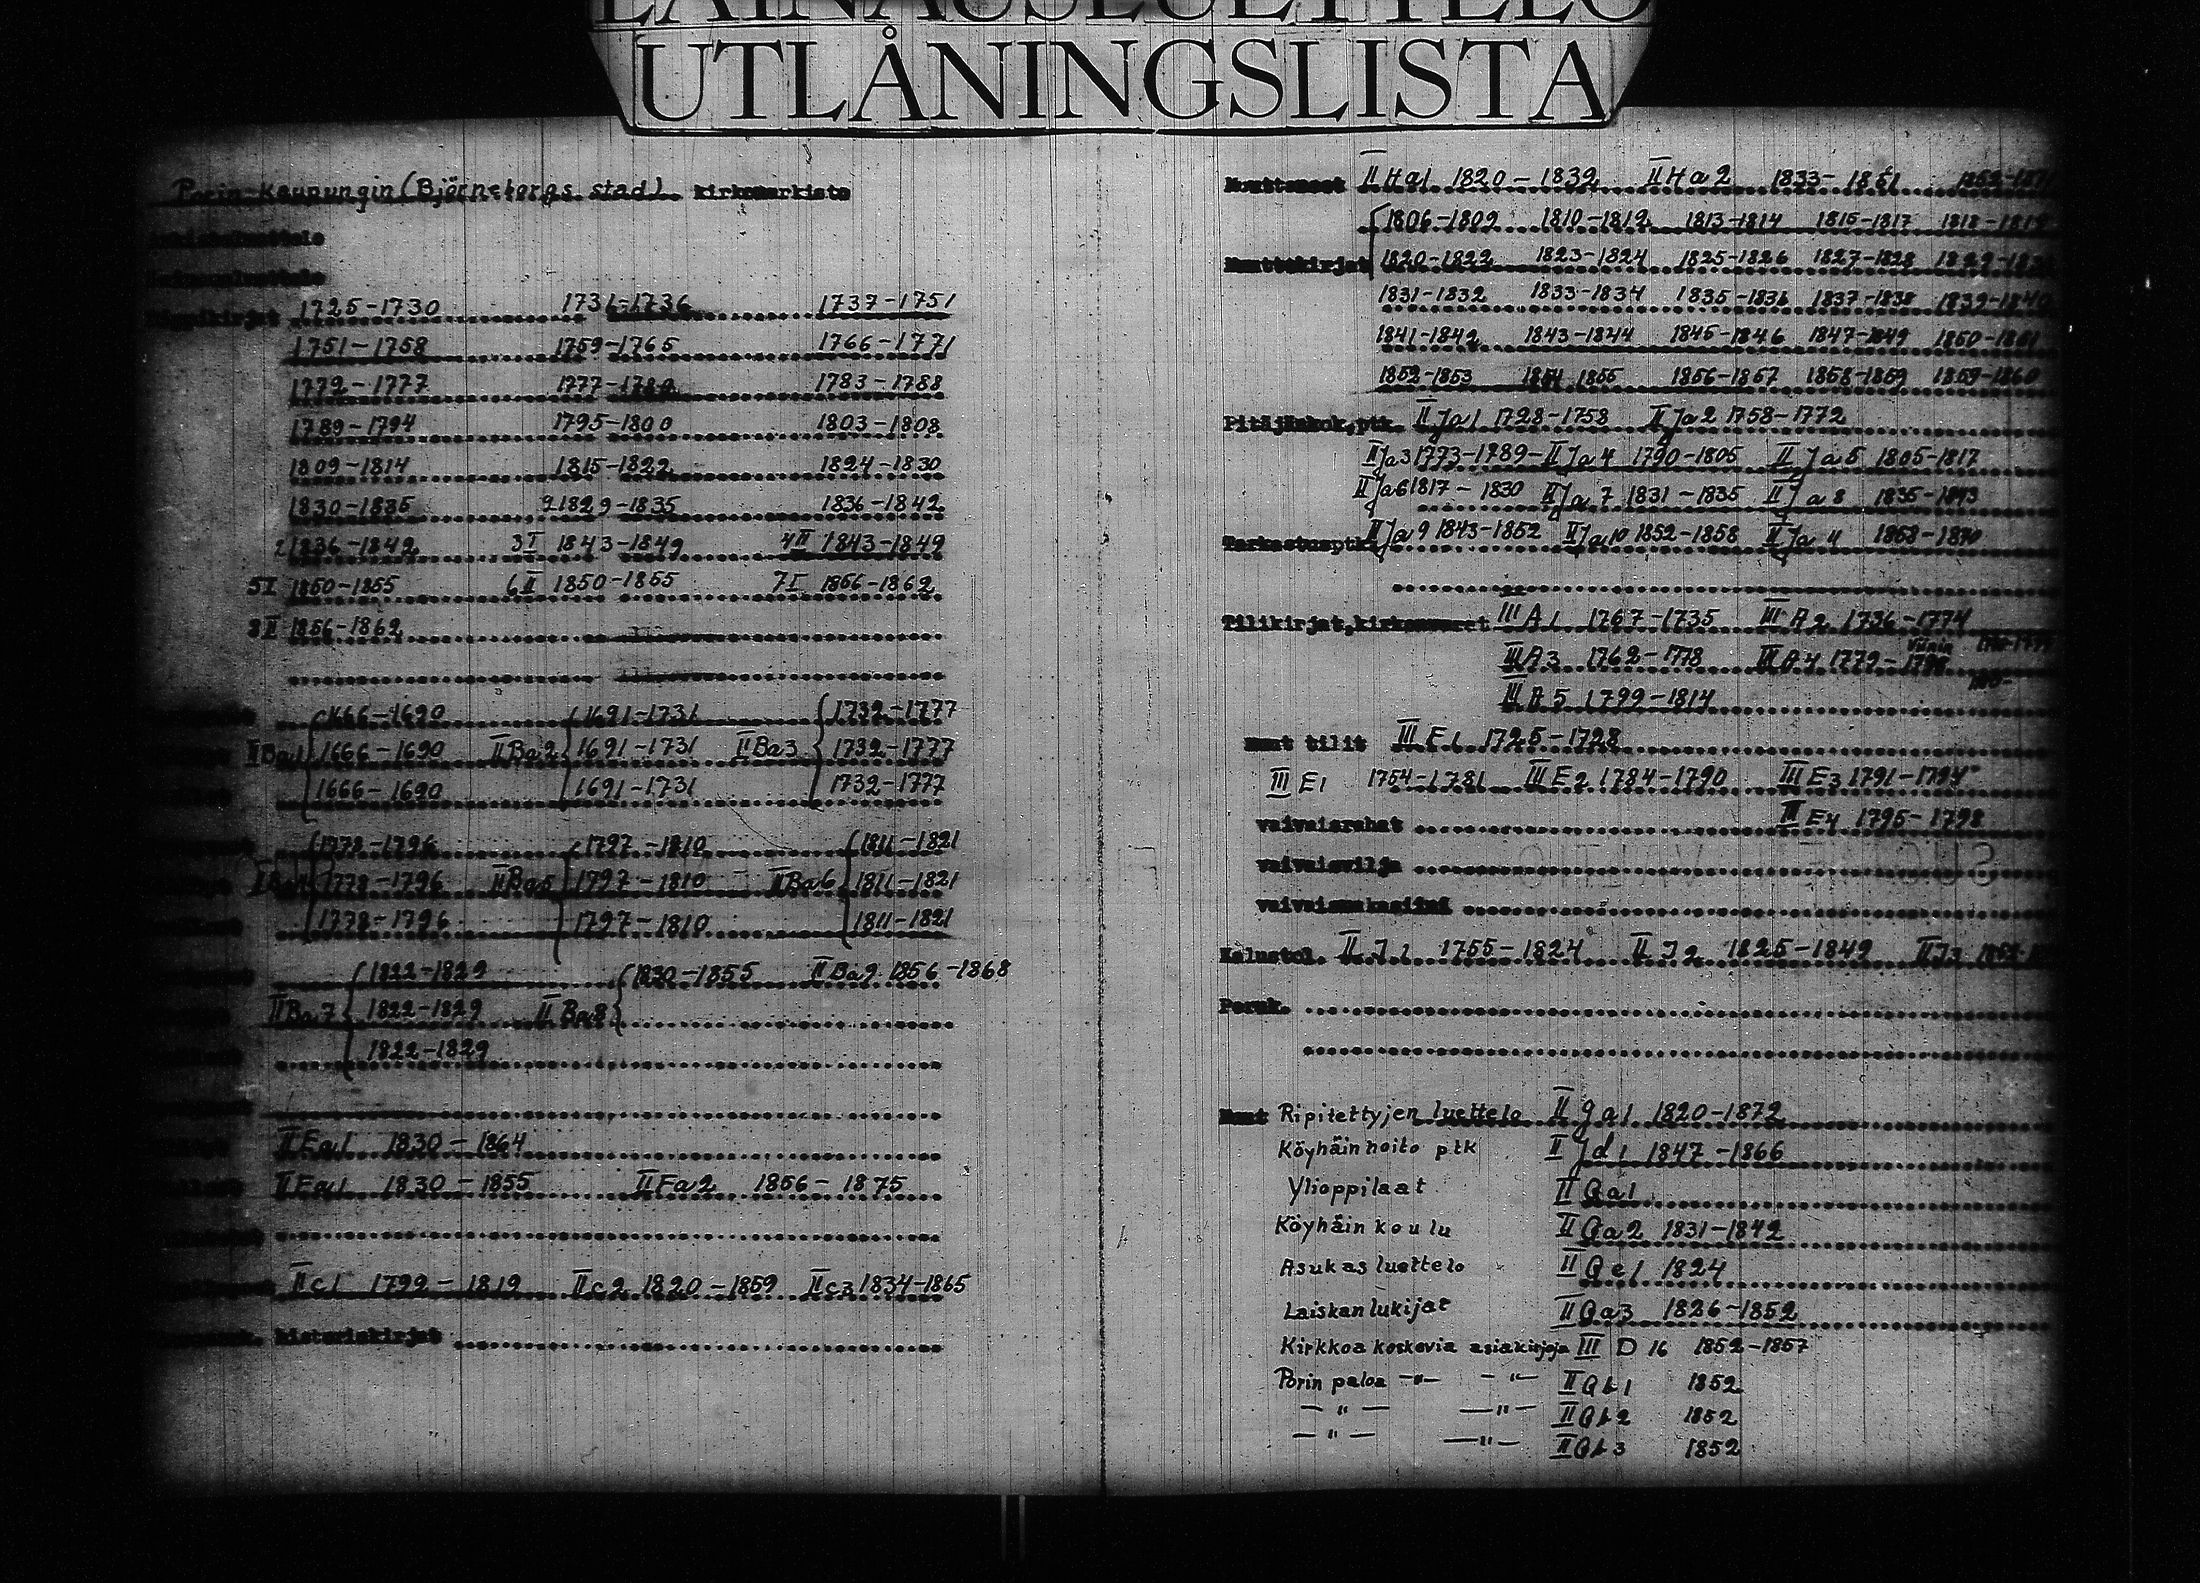 LAINAUSLUETTELO
UTLÅNINGSLISTA
Porin-Kaupungin (Björneborgs stad) kirkonarkisto
1725-1730 1731-1736 1737-1751
1751-1758 1759-1765 1766-1771
1772-1777 1777- 1783-1788
1789-1794 1795-1800 1803-1808
1809-1814 1815-1822 1824-1830
1830-1835 9 1829-1835 1836-1842
2 1836-1842 3 I 1843-1849 4 II 1843-1849
5 I 1850-1855 6 II 1850-1855 7 I 1856-1862
8 II 1856-1862
1666-1690 1691-1731 1732-1777
II Ba 1 1666-1690 II Ba 2 1691-1731 II Ba 3 1732-1777
1666-1690 1691-1731 1732-1777
1778-1796 1797-1810 1811-1821
II Ba 4 1778-1796 II Ba 5 1797-1810 II Ba 6 1811-1821
1778-1796 1797-1810 1811-1821
1822-1829 1830-1855 II Ba 9 1856-1868
II Ba 7 1822-1829 II Ba 8
1822-1829
II Ea 1 1830-1864
II Fa 1 1830-1855 II Fa 2 1856-1875
II c 1 1799-1819 II c 2 1820-1859 II c 3 1834-1865
historiakirjat
Muuttaneet II Ha 1 1820-1832 II Ha 2 1833-1851
1806-1809 1810-1812 1813-1814 1815-1817 1818-1819
Muuttokirjat 1820-1822 1823-1824 1825-1826 1827-1828
1831-1832 1833-1834 1835-1836 1837-1838 1839-1840
1841-1842 1843-1844 1845-1846 1847-1849 1850-1851
1852-1853 1854 1855 1856-1857 1858-1859 1859-1860
Pitäjänkok.ptk. II Ja 1 1728-1758 II Ja 2 1758-1772
II Ja 3 1773-1789 II Ja 4 1790-1805 II Ja 5 1805-1817
II Ja 6 1817-1830 II Ja 7 1831-1835 II Ja 8 1835-1843
Tarkastusptk. II Ja 9 1843-1852 II Ja 10 1852-1858 II Ja 11
Tilikirjat, kirkonvarat III A 1 1767-1735 III A 2 1736-1774
III A 3 1762-1778 III A 4 1779- Viinin
III A 5 1799-1814
Muut tilit III E 1 1725-1728
III E 1 1754-1781 III E 2 1784-1790 III E 3 1791-1794
vaivaisrahat III E 4 1795-1798
vaivaisvilja
vaivaismakasiini
Kalustol. II J 1 1755-1824 II J 2 1825-1849 II J 3
Peruk.
Muut Ripitettyjen luettelo II ga 1 1820-1872
Köyhäinhoito ptk II Jd 1 1847-1866
Ylioppilaat II Qa 1
Köyhäin koulu II Qa 2 1831-1842
Asukasluettelo II Qe 1 1824
Laiskanlukijat II Qa 3 1826-1852
Kirkkoa koskevia asiakirjoja III D 16 1852-1857
Porin paloa -"- -"- II Qb 1 1852
-"- -"- II Qb 2 1852
-"- -"- II Qb 3 1852